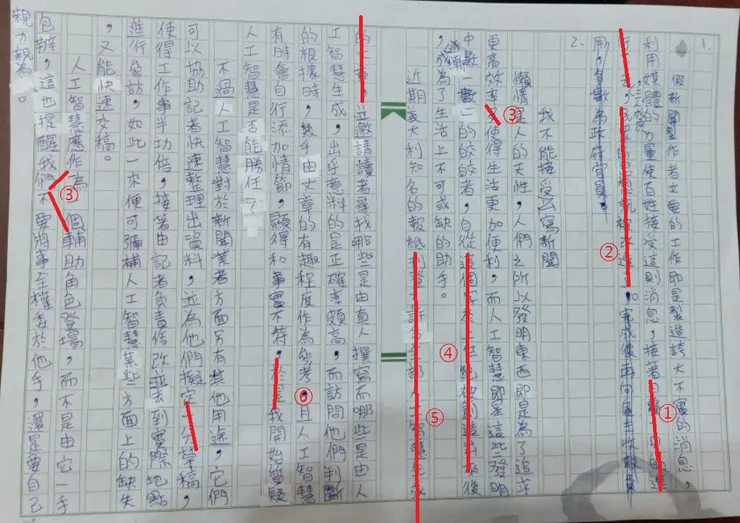 1.
假新聞製作者主要的工作即是製造誇大不實的消息,
利用媒體的力量使百姓接受這則消息,接著
三人成虎
完成後再向雇主收報酬
用,多數為政府官員。
2.
我不能接受AI寫新聞
懶惰是人的天性,人們之所以發明東西即是為了追求
更高效率使得生活更加便利,而人工智慧即是這些發明
中數一數二的佼佼者,自從這個 被創造出來後
,成為了生活上不可或缺的助手。
近期義大利知名的報紙刊登 全部 人工智慧生成
的文章,並邀請讀者尋找哪些是由真人撰寫而哪些是由人
工智慧生成,出乎意料的是正確率頗高,而訪問他們判斷
的根據時,幾乎由文章的有趣程度作為參考,且人工智慧
有時會自行添加情節,顯得和事實不符,於是我開始質疑
人工智慧是否能勝任?
不過人工智慧對於新聞業者方面亦有其他用途,它們
可以協助記者快速整理出資料,並為他們擬定一分草稿,
使得工作事半功倍,接著由記者負責修改並去到實際地點
進行采訪,如此一來便可彌補人工智慧某些方面上的缺失
,又能快速交稿。
人工智慧應作為一個輔助角色登場,而不是由它一手
包辦,這也提醒我們不要將事全權委於他手,還是要自己
親力親為。
①
②
③
④
⑤
⑥
③